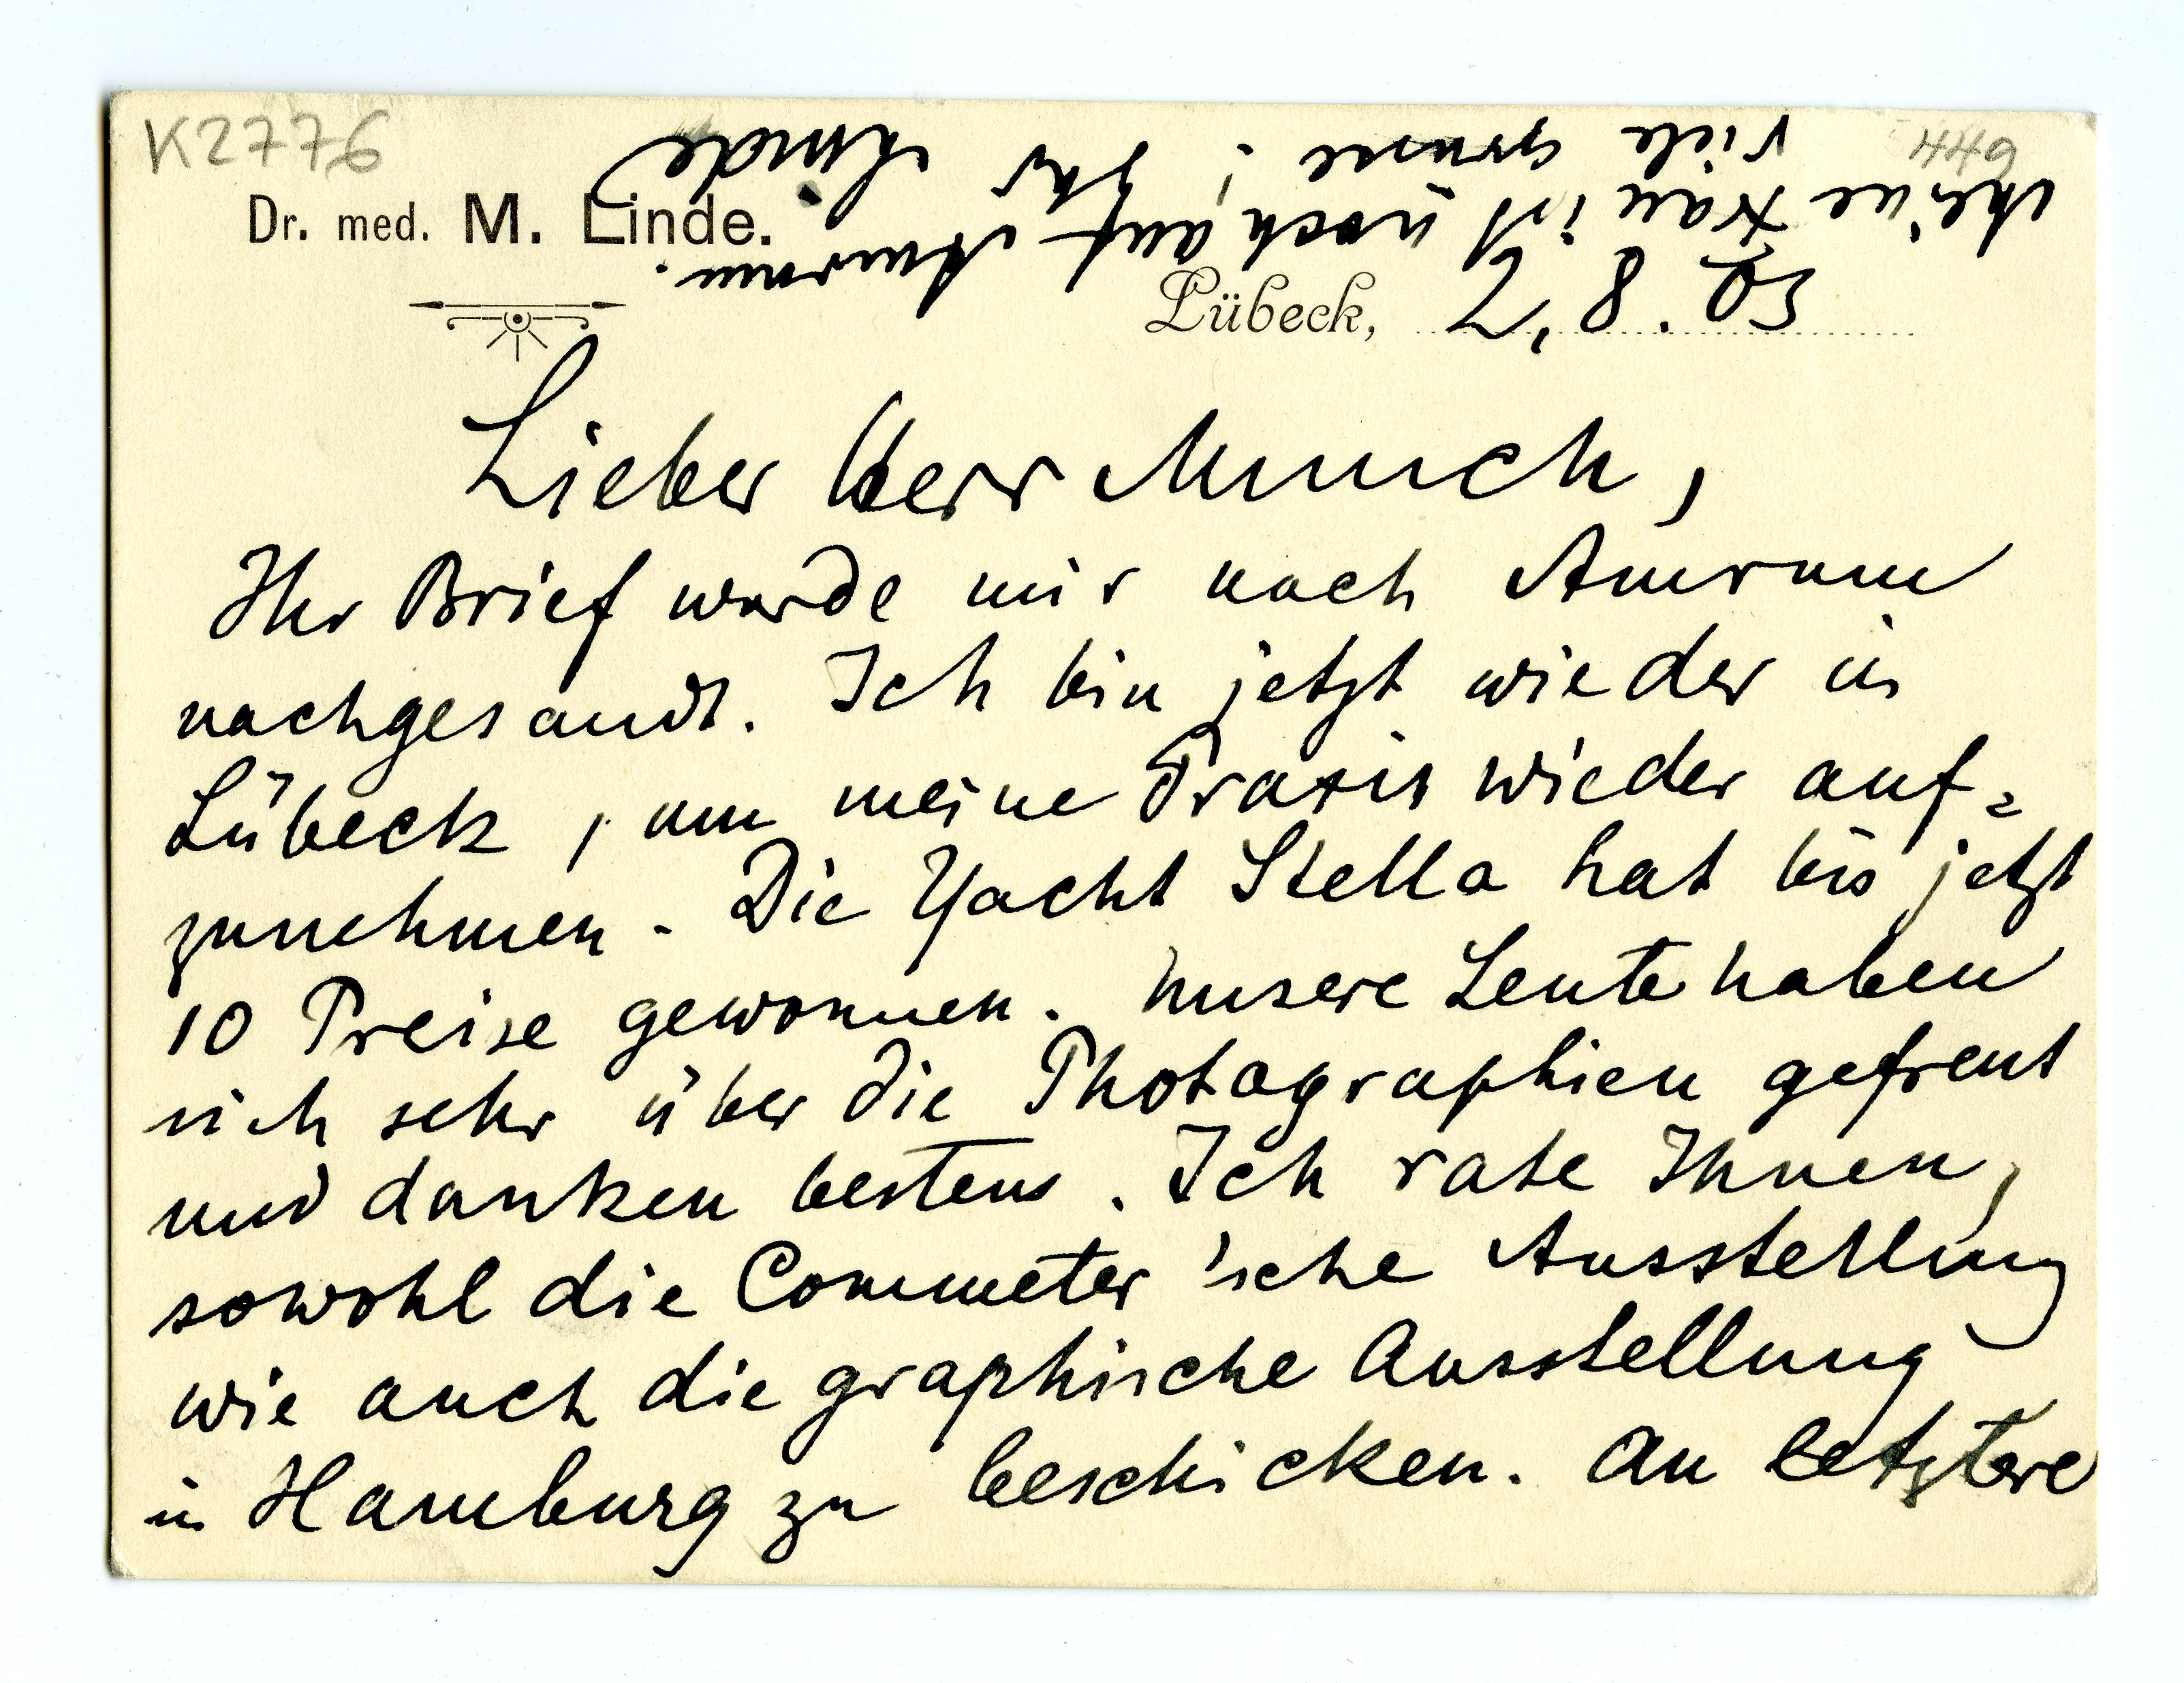 K2776
449
Dr. med. M. Linde.
Lübeck, 7. 8.
Lieber Herr Munch,
Ihr Brief wurde mir nach Amrum
nachgesandt. Ich bin jetzt wieder in
Lübeck, um meine Praxis wieder auf=
zunehmen. Die Yacht Stella hat bis jetzt
10 Preise gewonnen. Unsere Leute haben
sich sehr über die Photographien gefreut
und danken bestens. Ich rate Ihnen,
sowohl die Commeter'sche Ausstellung
wie auch die graphische Ausstellung
in Hamburg zu beschicken. An letztere
Meine Frau ist noch auf Amrum.
Viele Grüsse! Ihr Linde